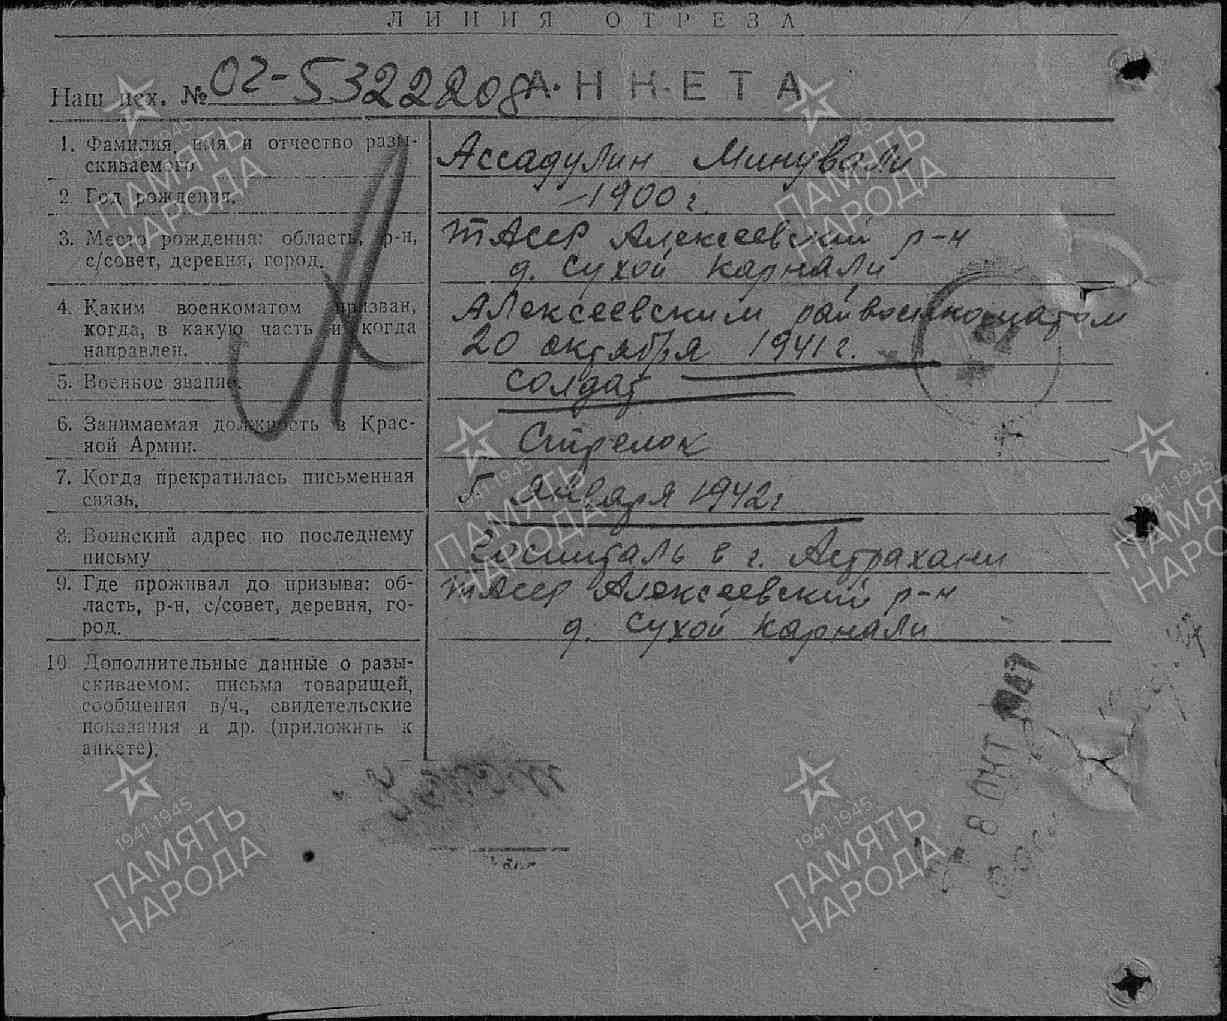 ЛИНИЯ ОТРЕЗА
Наш исх. № 02-5322208 АНКЕТА
1. Фамилия, имя и отчество разы-
скиваемого
Ассадулин Минували
2. Год рождения.
1900 г.
3. Место рождения: область, р-н,
с/совет, деревня, город.
ТАССР Алексеевский р-н
д. Сухой Карнали
4. Каким военкоматом призван,
когда, в какую часть и когда
направлен.
Алексеевским райвоенкоматом
20 октября 1941 г.
5. Военное звание.
солдат
6. Занимаемая должность в Крас-
ной Армии.
Стрелок
7. Когда прекратилась письменная
связь.
5 января 1942 г
8. Воинский адрес по последнему
письму
Госпиталь в г. Астрахани
9. Где проживал до призыва: об-
ласть, р-н, с/совет, деревня, го-
род.
ТАССР Алексеевский р-н
д. Сухой Карнали
10. Дополнительные данные о разы-
скиваемом: письма товарищей,
сообщения в/ч., свидетельские
показания и др. (приложить к
анкете).
8 ОКТ 1947
1941-1945
ПАМЯТЬ
НАРОДА
1941-1945
ПАМЯТЬ
НАРОДА
1941-1945
ПАМЯТЬ
НАРОДА
1941-1945
ПАМЯТЬ
НАРОДА
1941-1945
ПАМЯТЬ
НАРОДА
1941-1945
ПАМЯТЬ
НАРОДА